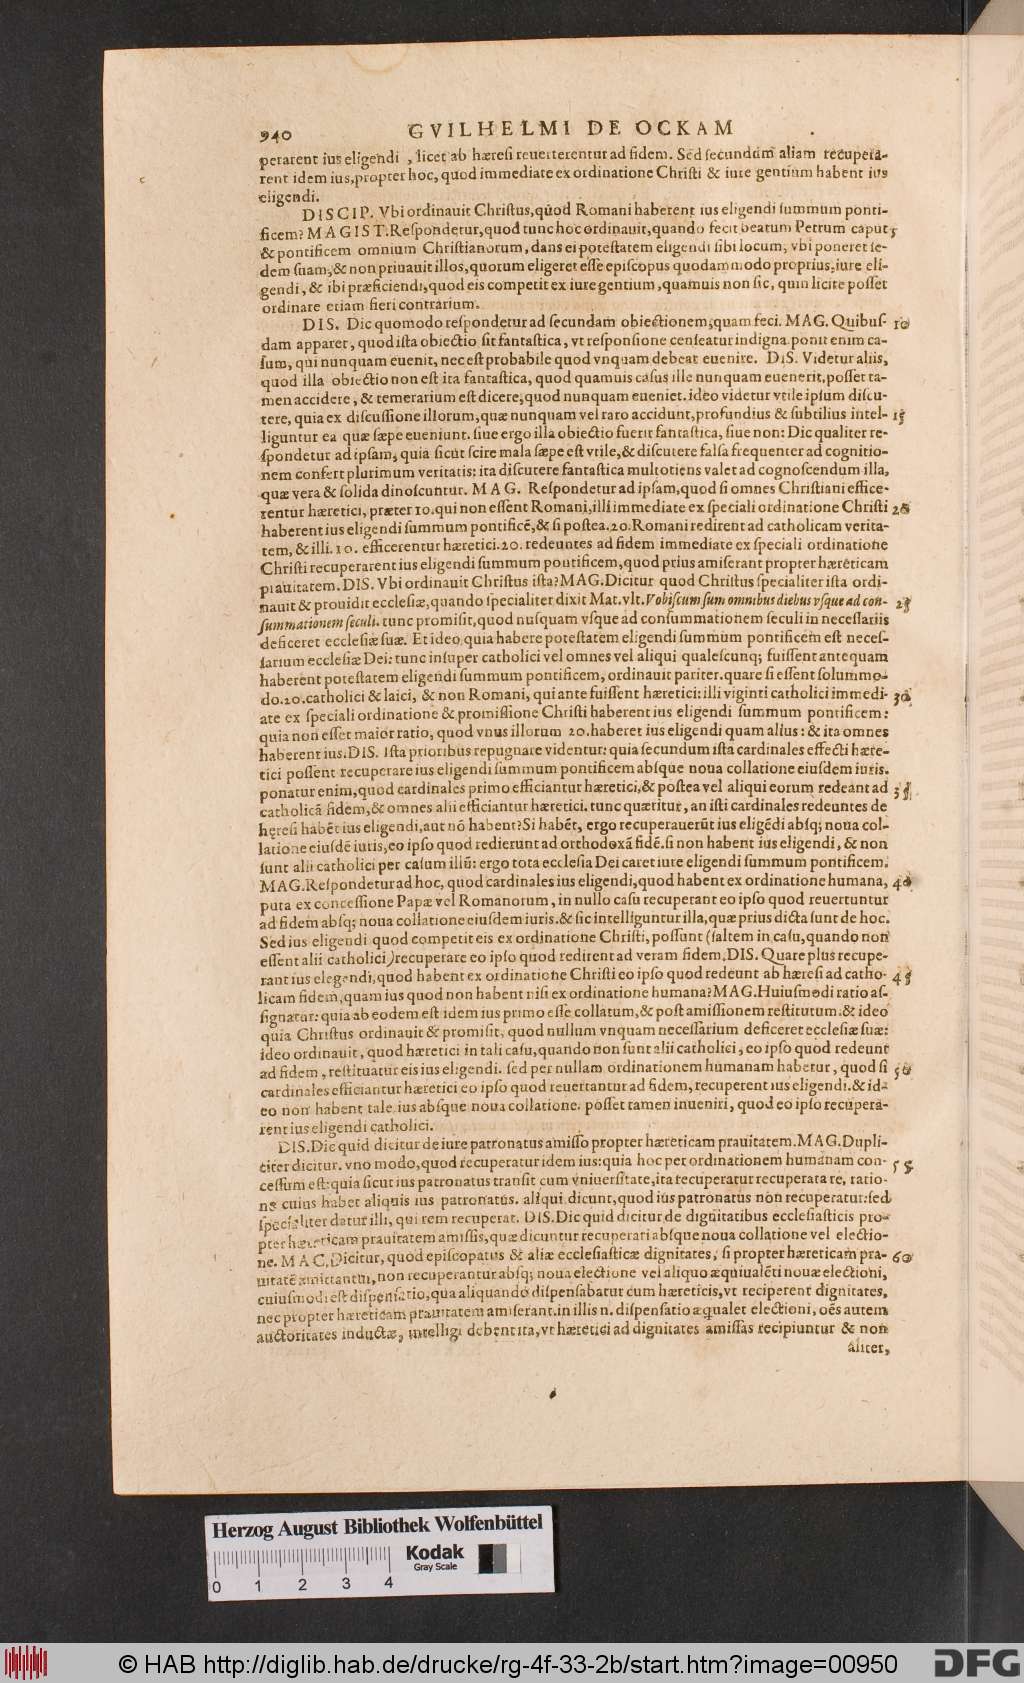 940 GVILHELMI DE OCKAM
perarent ius eligendi, licet ab hæresi reuerterentur ad fidem. Sed secundum aliam recupera-
rent idem ius, propter hoc, quod immediate ex ordinatione Christi & iure gentium habent ius
eligendi.
DISCIP. Vbi ordinauit Christus, quòd Romani haberent ius eligendi summum ponti-
ficem? MAGIST. Respondetur, quod tunc hoc ordinauit, quando fecit beatum Petrum caput 5
& pontificem omnium Christianorum, dans ei potestatem eligendi sibi locum, vbi poneret se-
dem suam, & non priuauit illos, quorum eligeret esse episcopus quodammodo proprius, iure eli-
gendi, & ibi præficiendi, quod eis competit ex iure gentium, quamuis non sic, quin licite posset
ordinare etiam fieri contrarium.
DIS. Dic quomodo respondetur ad secundam obiectionem, quam feci. MAG. Quibus- 10
dam apparet, quod ista obiectio sit fantastica, vt responsione censeatur indigna. ponit enim ca-
sum, qui nunquam euenit, nec est probabile quod vnquam debeat euenire. DIS. Videtur aliis,
quod illa obiectio non est ita fantastica, quod quamuis casus ille nunquam euenerit, posset ta-
men accidere, & temerarium est dicere, quod nunquam eueniet. ideo videtur vtile ipsum discu-
tere, quia ex discussione illorum, quæ nunquam vel raro accidunt, profundius & subtilius intel- 15
liguntur ea quæ sæpe eueniunt. siue ergo illa obiectio fuerit fantastica, siue non: Dic qualiter re-
spondetur ad ipsam, quia sicut scire mala sæpe est vtile, & discutere falsa frequenter ad cognitio-
nem confert plurimum veritatis: ita discutere fantastica multotiens valet ad cognoscendum illa,
quæ vera & solida dinoscuntur. MAG. Respondetur ad ipsam, quod si omnes Christiani effice-
rentur hæretici, præter 10. qui non essent Romani, illi immediate ex speciali ordinatione Christi 20
haberent ius eligendi summum pontificē, & si postea. 20. Romani redirent ad catholicam verita-
tem, & illi. 10. efficerentur hæretici. 20. redeuntes ad fidem immediate ex speciali ordinatione
Christi recuperarent ius eligendi summum pontificem, quod prius amiserant propter hæreticam
prauitatem. DIS. Vbi ordinauit Christus ista? MAG. Dicitur quod Christus specialiter ista ordi-
nauit & prouidit ecclesiæ, quando specialiter dixit Mat. vlt. Vobiscum sum omnibus diebus vsque ad con- 25
summationem seculi. tunc promisit, quod nusquam vsque ad consummationem seculi in necessariis
deficeret ecclesiæ suæ. Et ideo, quia habere potestatem eligendi summum pontificem est neces-
sarium ecclesiæ Dei: tunc insuper catholici vel omnes vel aliqui qualescunq; fuissent antequam
haberent potestatem eligendi summum pontificem, ordinauit pariter. quare si essent solummo-
do. 20. catholici & laici, & non Romani, qui ante fuissent hæretici: illi viginti catholici immedi- 30
ate ex speciali ordinatione & promissione Christi haberent ius eligendi summum pontificem:
quia non esset maior ratio, quod vnus illorum 20. haberet ius eligendi quam alius: & ita omnes
haberent ius. DIS. Ista prioribus repugnare videntur: quia secundum ista cardinales effecti hære-
tici possent recuperare ius eligendi summum pontificem absque noua collatione eiusdem iuris.
ponatur enim, quod cardinales primo efficiantur hæretici, & postea vel aliqui eorum redeant ad 35
catholicā fidem, & omnes alii efficiantur hæretici. tunc quæritur, an isti cardinales redeuntes de
hęresi habēt ius eligendi, aut nō habent? Si habēt, ergo recuperauerūt ius eligēdi absq; noua col-
latione eiusdē iuris, eo ipso quod redierunt ad orthodoxā fidē. si non habent ius eligendi, & non
sunt alii catholici per casum illū: ergo tota ecclesia Dei caret iure eligendi summum pontificem.
MAG. Respondetur ad hoc, quod cardinales ius eligendi, quod habent ex ordinatione humana, 40
puta ex concessione Papæ vel Romanorum, in nullo casu recuperant eo ipso quod reuertuntur
ad fidem absq; noua collatione eiusdem iuris. & sic intelliguntur illa, quæ prius dicta sunt de hoc.
Sed ius eligendi quod competit eis ex ordinatione Christi, possunt (saltem in casu, quando non
essent alii catholici) recuperare eo ipso quod redirent ad veram fidem. DIS. Quare plus recupe-
rant ius elegendi, quod habent ex ordinatione Christi eo ipso quod redeunt ab hæresi ad catho- 45
licam fidem, quam ius quod non habent nisi ex ordinatione humana? MAG. Huiusmodi ratio as-
signatur: quia ab eodem est idem ius primo esse collatum, & post amissionem restitutum. & ideo
quia Christus ordinauit & promisit, quod nullum vnquam necessarium deficeret ecclesiæ suæ:
ideo ordinauit, quod hæretici in tali casu, quando non sunt alii catholici, eo ipso quod redeunt
ad fidem, restituatur eis ius eligendi. sed per nullam ordinationem humanam habetur, quod si 50
cardinales efficiantur hæretici eo ipso quod reuertantur ad fidem, recuperent ius eligendi. & id-
eo non habent tale ius absque noua collatione. posset tamen inueniri, quod eo ipso recupera-
rent ius eligendi catholici.
DIS. Dic quid dicitur de iure patronatus amisso propter hæreticam prauitatem. MAG. Dupli-
citer dicitur. vno modo, quod recuperatur idem ius: quia hoc per ordinationem humanam con- 55
cessum est: quia sicut ius patronatus transit cum vniuersitate, ita recuperatur recuperata re, ratio-
ne cuius habet aliquis ius patronatus. aliqui dicunt, quod ius patronatus non recuperatur: sed
specialiter datur illi, qui rem recuperat. DIS. Dic quid dicitur de dignitatibus ecclesiasticis pro-
pter hæreticam prauitatem amissis, quæ dicuntur recuperari absque noua collatione vel electio-
ne. MAG. Dicitur, quod episcopatus & aliæ ecclesiasticæ dignitates, si propter hæreticam pra- 60
uitatē amittantur, non recuperantur absq; noua electione vel aliquo æquiualēti nouæ electioni,
cuiusmodi est dispensatio, qua aliquando dispensabatur cum hæreticis, vt reciperent dignitates,
nec propter hæreticam prauitatem amiserant. in illis n. dispensatio æqualet electioni, oēs autem
auctoritates inductæ, intelligi debent ita, vt hæretici ad dignitates amissas recipiuntur & non
aliter,
Herzog August Bibliothek Wolfenbüttel
Kodak
Gray Scale
0 1 2 3 4
© HAB http://diglib.hab.de/drucke/rg-4f-33-2b/start.htm?image=00950 DFG